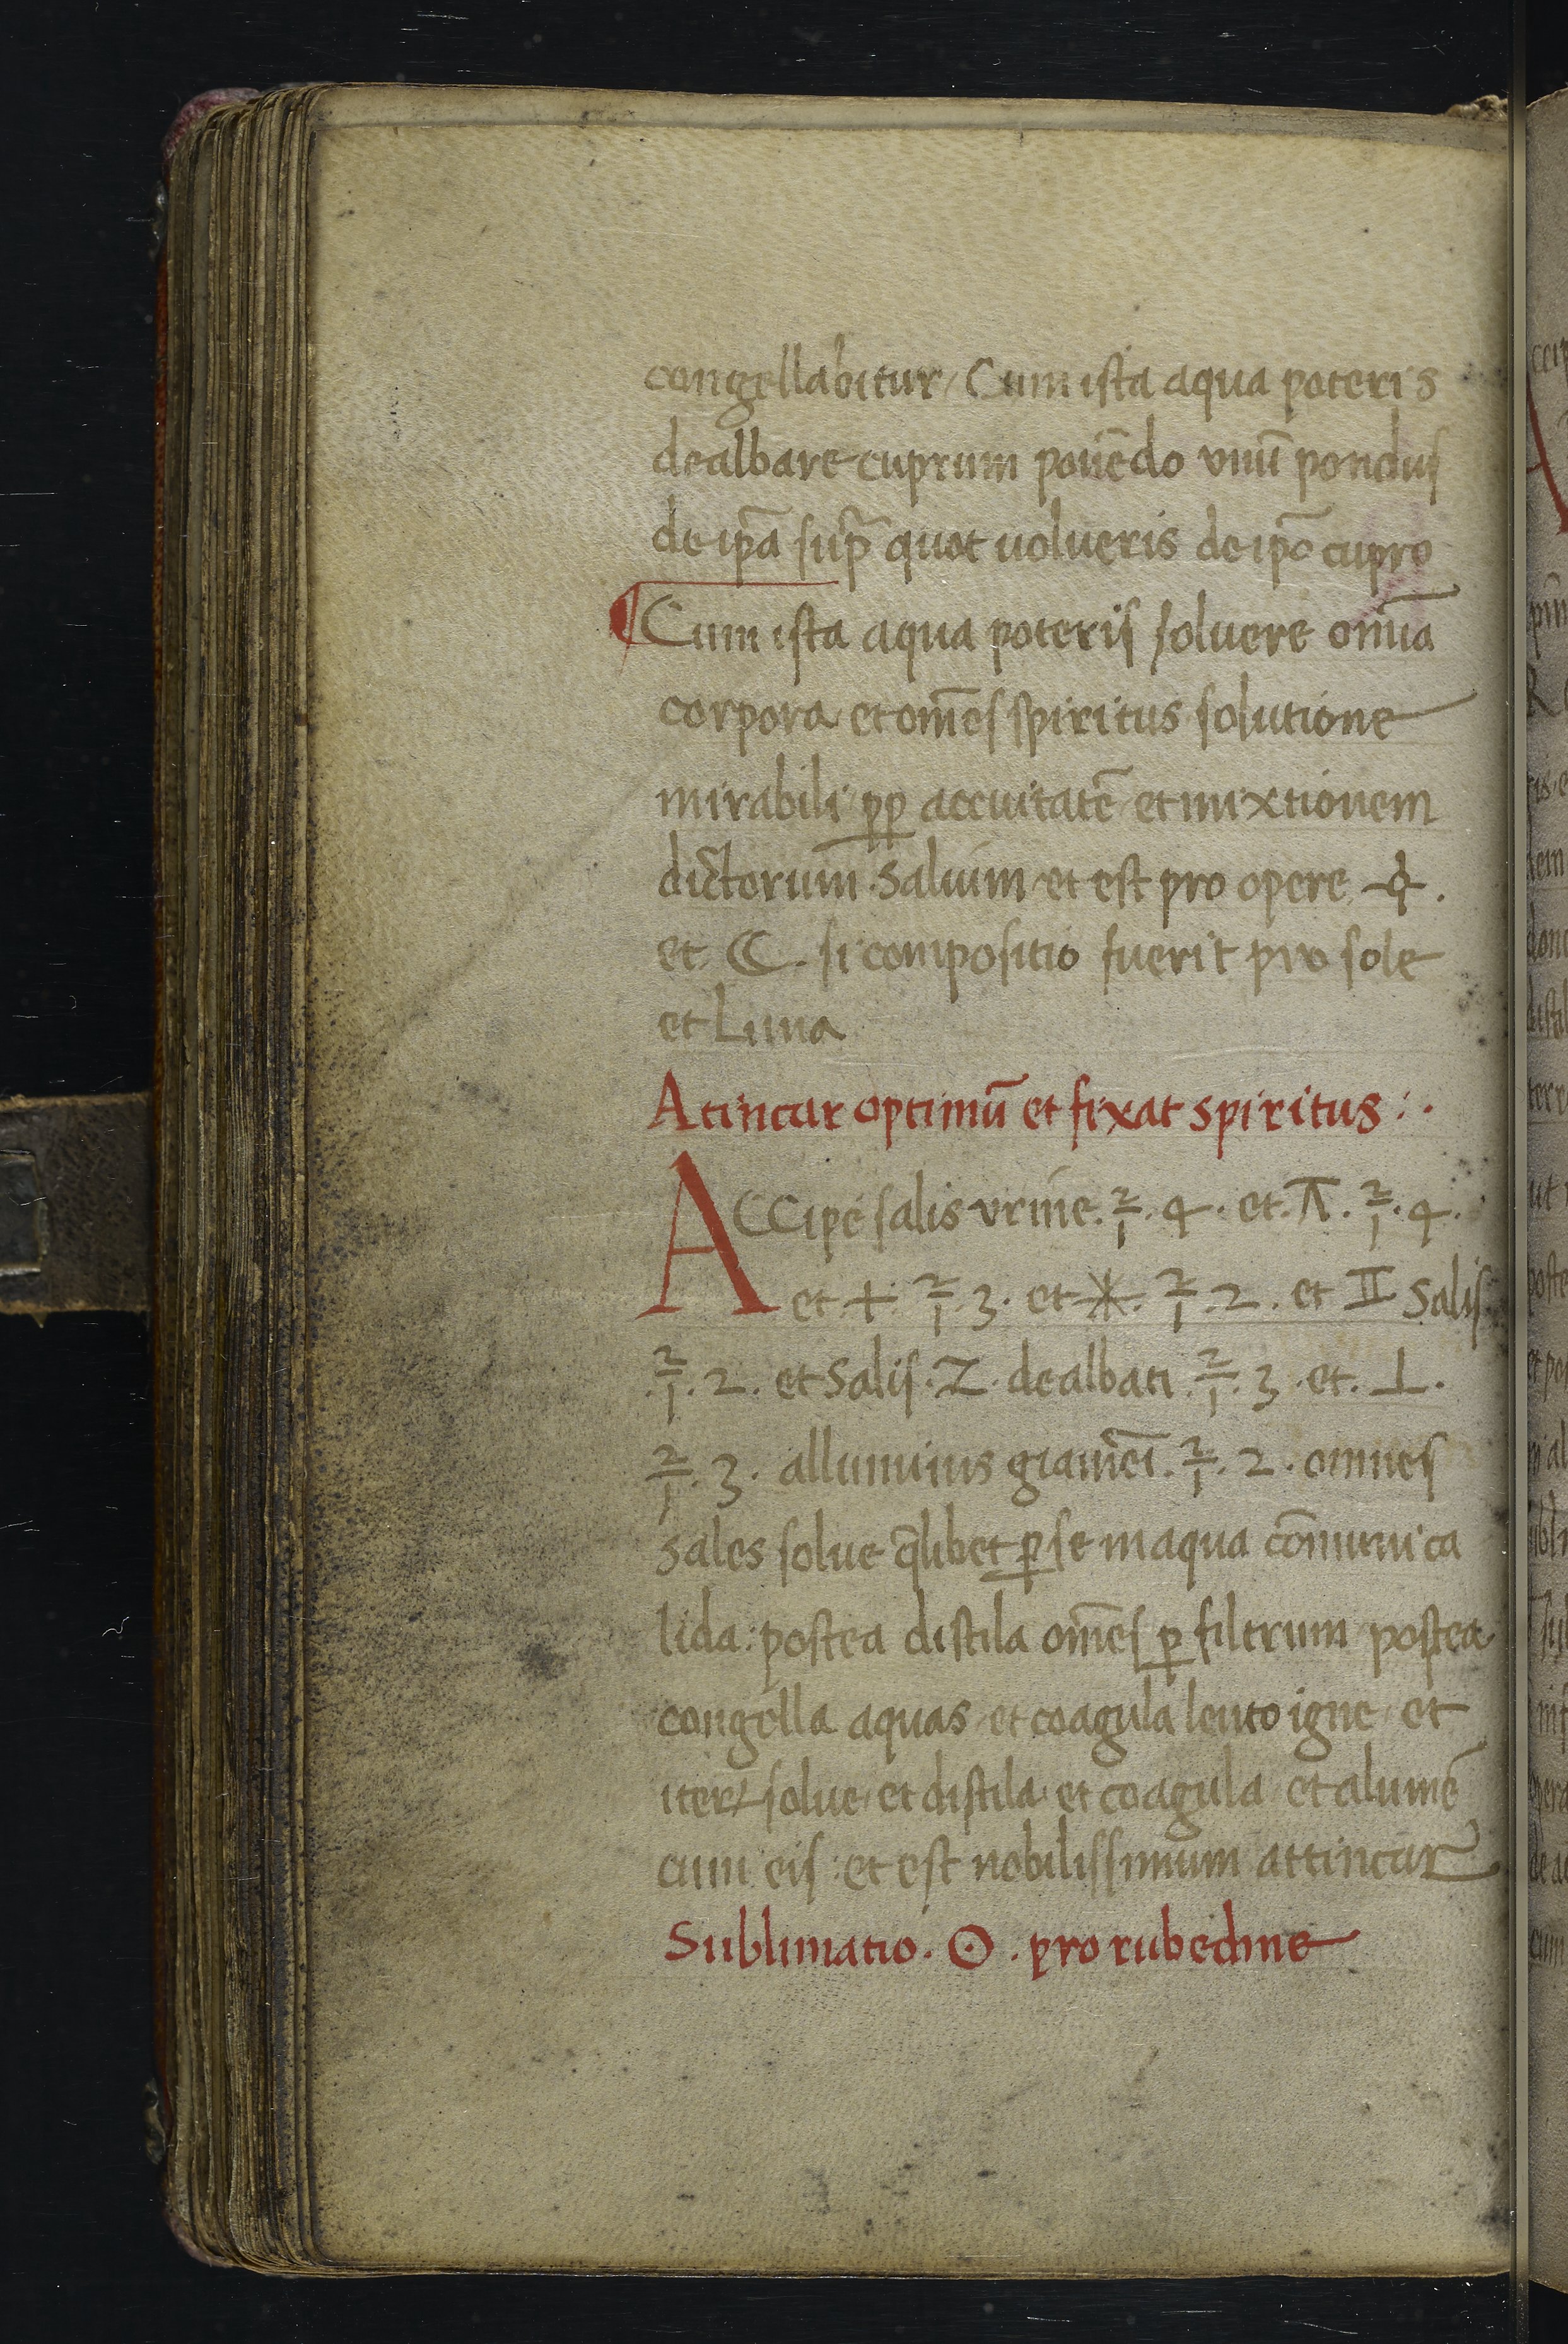 congellabitur / Cum ista aqua poteris
dealbare cuprum ponēdo vnū pondus
de ip̄a sup̄ quot uolueris de ip̄o cupro
Cum ista aqua poteris soluere om̄ia
corpora et om̄es spiritus solutione
mirabili pp̱ accuitatē et mixtionem
dictorum salium et est pro opere
et ☾. si compositio fuerit pro sole
et Luna
Atincar optimū et fixat spiritus :.
ACCipe salis vrine. . 4. et. . 4.
et +. . 3. et ✳. . 2. et II salis
. 2. et salis. Z. dealbati . 3. et. ⊥.
. 3. alluminis . 2. omnes
sales solue q̄libet ꝑ se in aqua cōmuni ca
lida: postea distila om̄es ꝑ filtrum postea
congella aquas et coagula lento igne et
iteꝝ solue et distila et coagula et alumē
cum eis: et est nobilissimum attincar
Sublimatio. ☉. pro rubedine